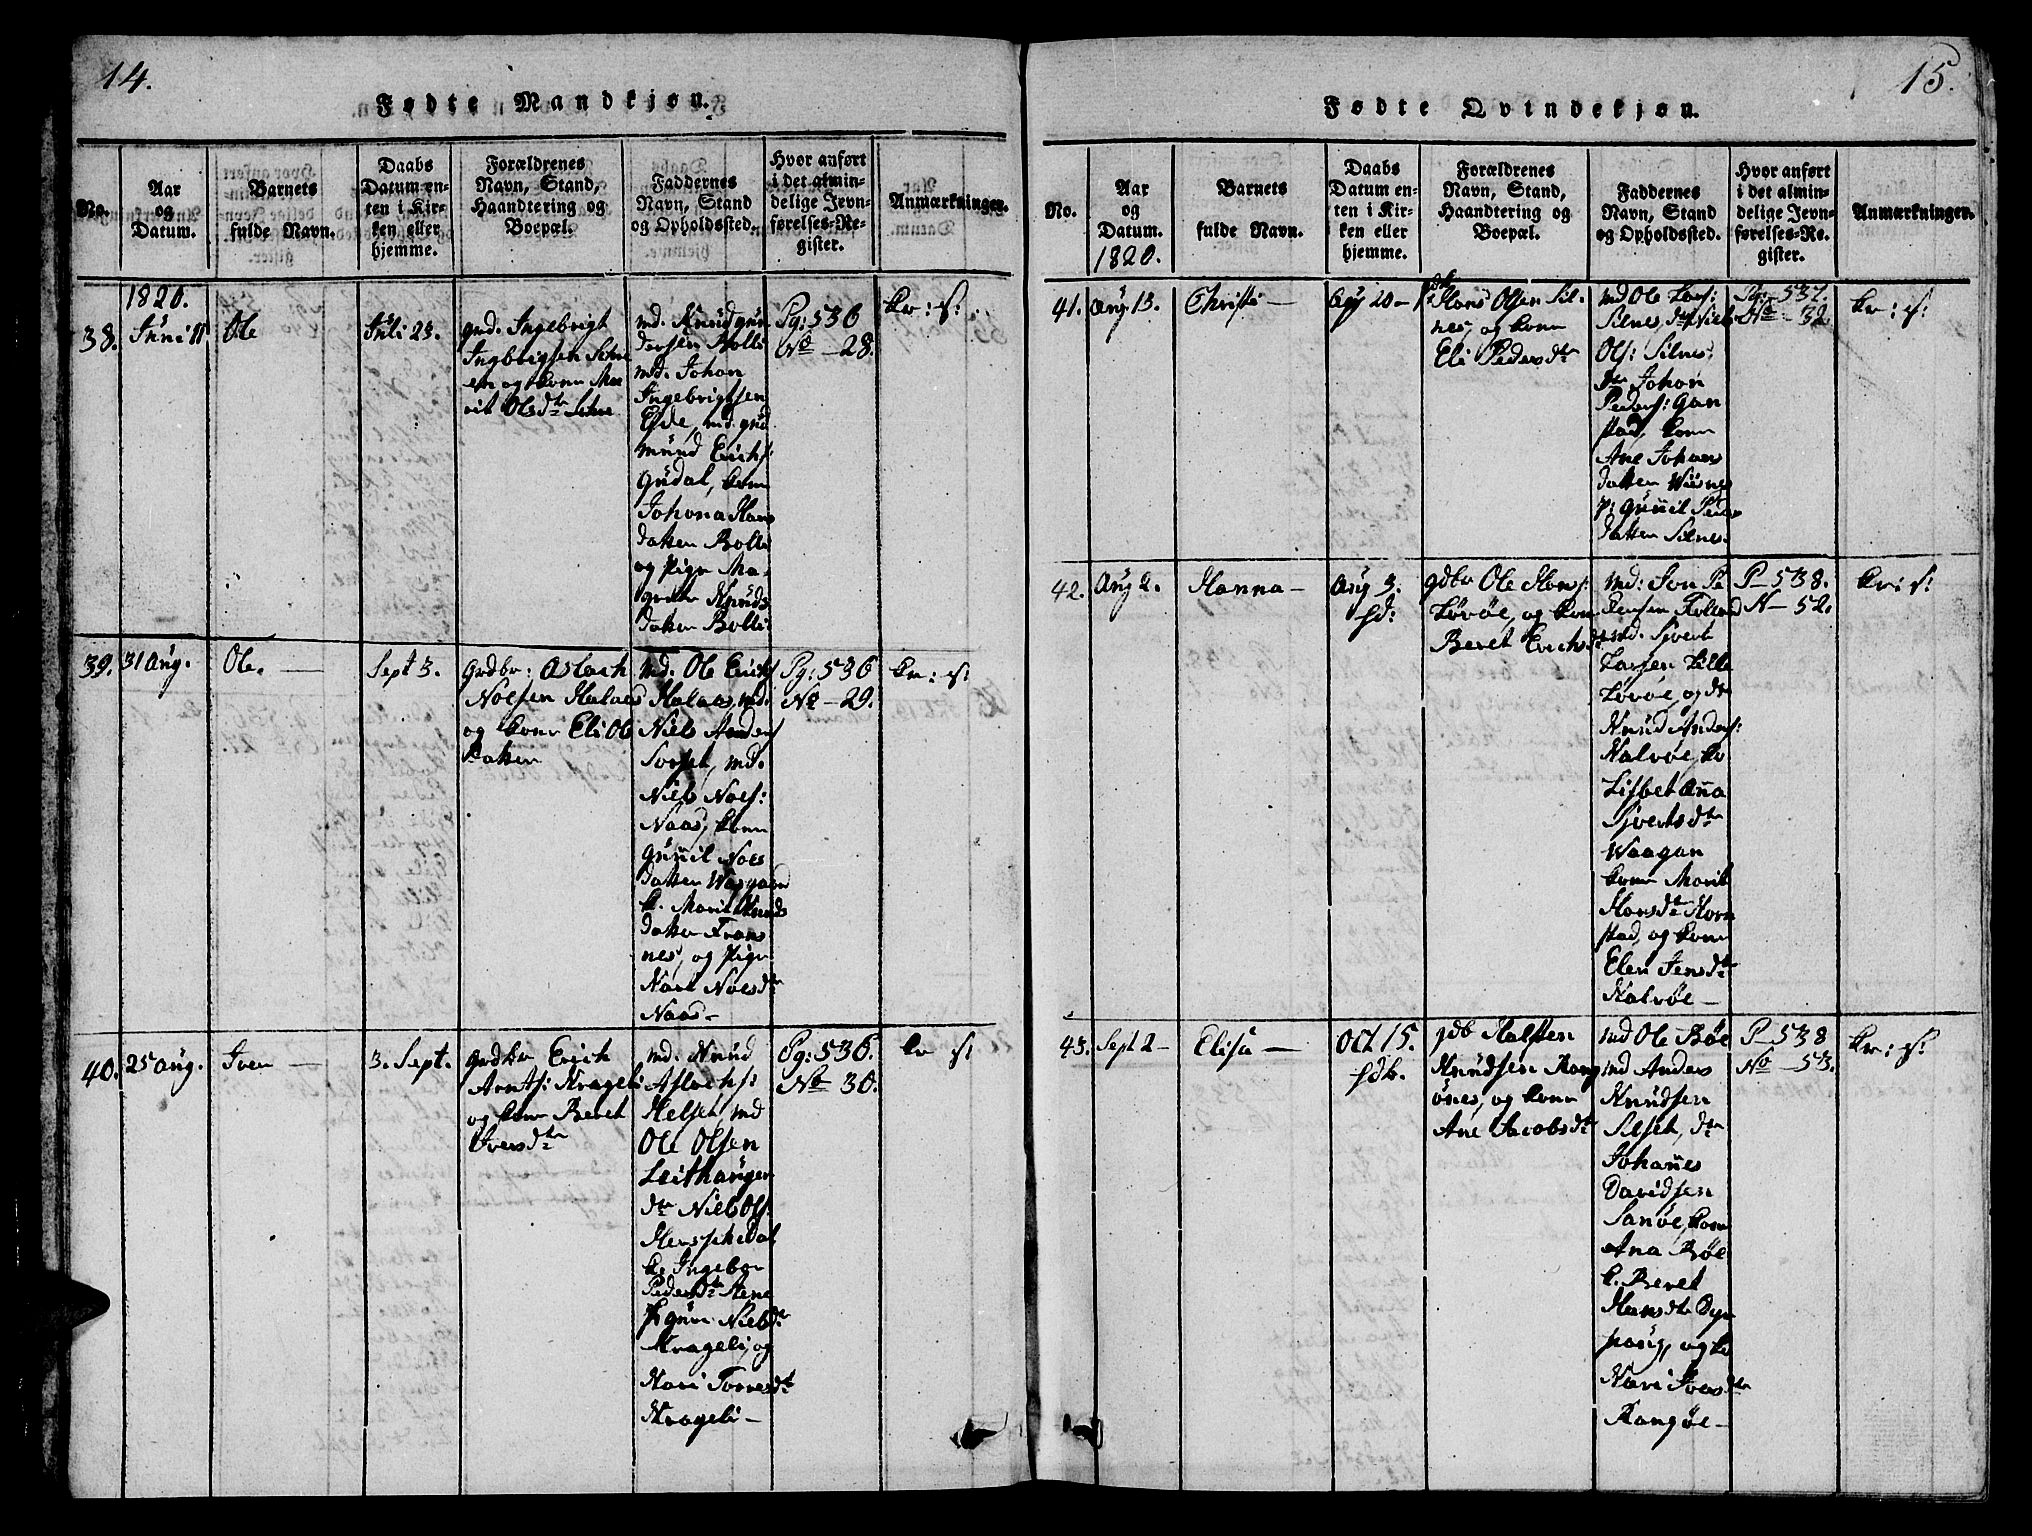 14.
Fødte Mandkjøn.
No.
Aar
og
Datum.
Barnets
fulde Navn.
Daabs
Datum en-
ten i Kir-
ken eller
hjemme.
Forældrenes
Navn, Stand,
Haandtering og
Boepæl.
Faddernes
Navn, Stand
og Opholdssted.
Hvor anført
i det almin-
delige Jevn-
førelses-Re-
gister.
Anmærkninger.
1820.
38.
Juni 11
Ole
Juli 23.
gmd. Ingebrigt
Ingbrigtsen
og kone Ma
rit Olsdtr
md. Knud Gun
dersen Bolli
md. Johan
Ingebrigtsen
Eide, md. Gud
mund Erichs:
Gudal, kone
Johona Hans
datter Bolli
og Pige Ma-
grete Knuds
datter Bolli
Pg: 536
No - 28.
kr: s:
39.
31 Aug.
Ole. —
Sept 3.
grdbr: Aslach
Noesen Halaas
og kone Eli Ols
datter
md. Ole Erichs
Halaas, md.
Niels Anders
Sorset, md.
Niels Noes:
Naas, kone
Gunil Noes
datter Waagan
k. Marit Knuds
datter Frans
nes, og Pige
Kari Noesdtr
Naas -
Pg: 536
No - 29.
kr: s:
40.
25 Aug.
Iver —
3. Sept.
grdbr Erich
Arnts: Krageli
og kone Beret
Iversdtr
md. Knud
Aslachs:
Helset, md
Ole Olsen
Leithauger
dtr Niels Ols:
k. Ingebor
Pedersdtr Stene
P Guri Nielsdtr
Krageli, og
Kari Torresdtr
Krageli -
Pg: 536.
No 30.
kr s:
15.
Fødte Qvindekjøn.
No.
Aar
og
Datum.
1820.
Barnets
fulde Navn.
Daabs
Datum en-
ten i Kir-
ken eller
hjemme.
Forældrenes
Navn, Stand,
Haandtering og
Boepæl.
Faddernes
Navn, Stand
og Opholdssted.
Hvor anført
i det almin-
delige Jevn-
førelses-Re-
gister.
Anmærkninger.
41.
Aug. 13.
Christi —
Aug 20 -
Hans Olsen Sil-
nes, og kone
Eli Pedersdtr
md Ole Lars:
Silnes, dtr Niels
Ols: Silnes,
dtr Johan
Peders: Gan
stad, kone
Ane Johans
datter Wiisnes
P: Gunil Peders
datter Silnes.
Pg: - 537.
No - 32
kr: s:
42.
Aug 2.
Hanna —
Aug 3.
hd:
gdbr Ole Hans:
Lørøe, og kone
Beret Erichsdtr
md: Jon Pe
dersen
md. Sjvert
Larsen Lille
Lørøe, og dtr
Knud Anders:
Halvøe, ko
Lisbet Ana
Sjvertsdtr
Waagan
kone Marit
Hansdtr Horn
stad, og kone
Elen Jensdtr
Halvøe —
P - 538.
N - 52.
kr: s:
43.
Sept 2 -
Elisa —
Oct 15.
gdb Halsten
Knudsen Rang
ønes, og kone
Ane Jacobsdtr
md Ole Bøe
md Anders
Knudsen
Silset, dtr
Johanes
Davidsen
Sanøe, kone
Ana Bøe
k. Beret
Hansdtr Dyr
houg, og k
Kari Ivarsdtr
Rangøe -
P - 538
No - 53.
kr: s: